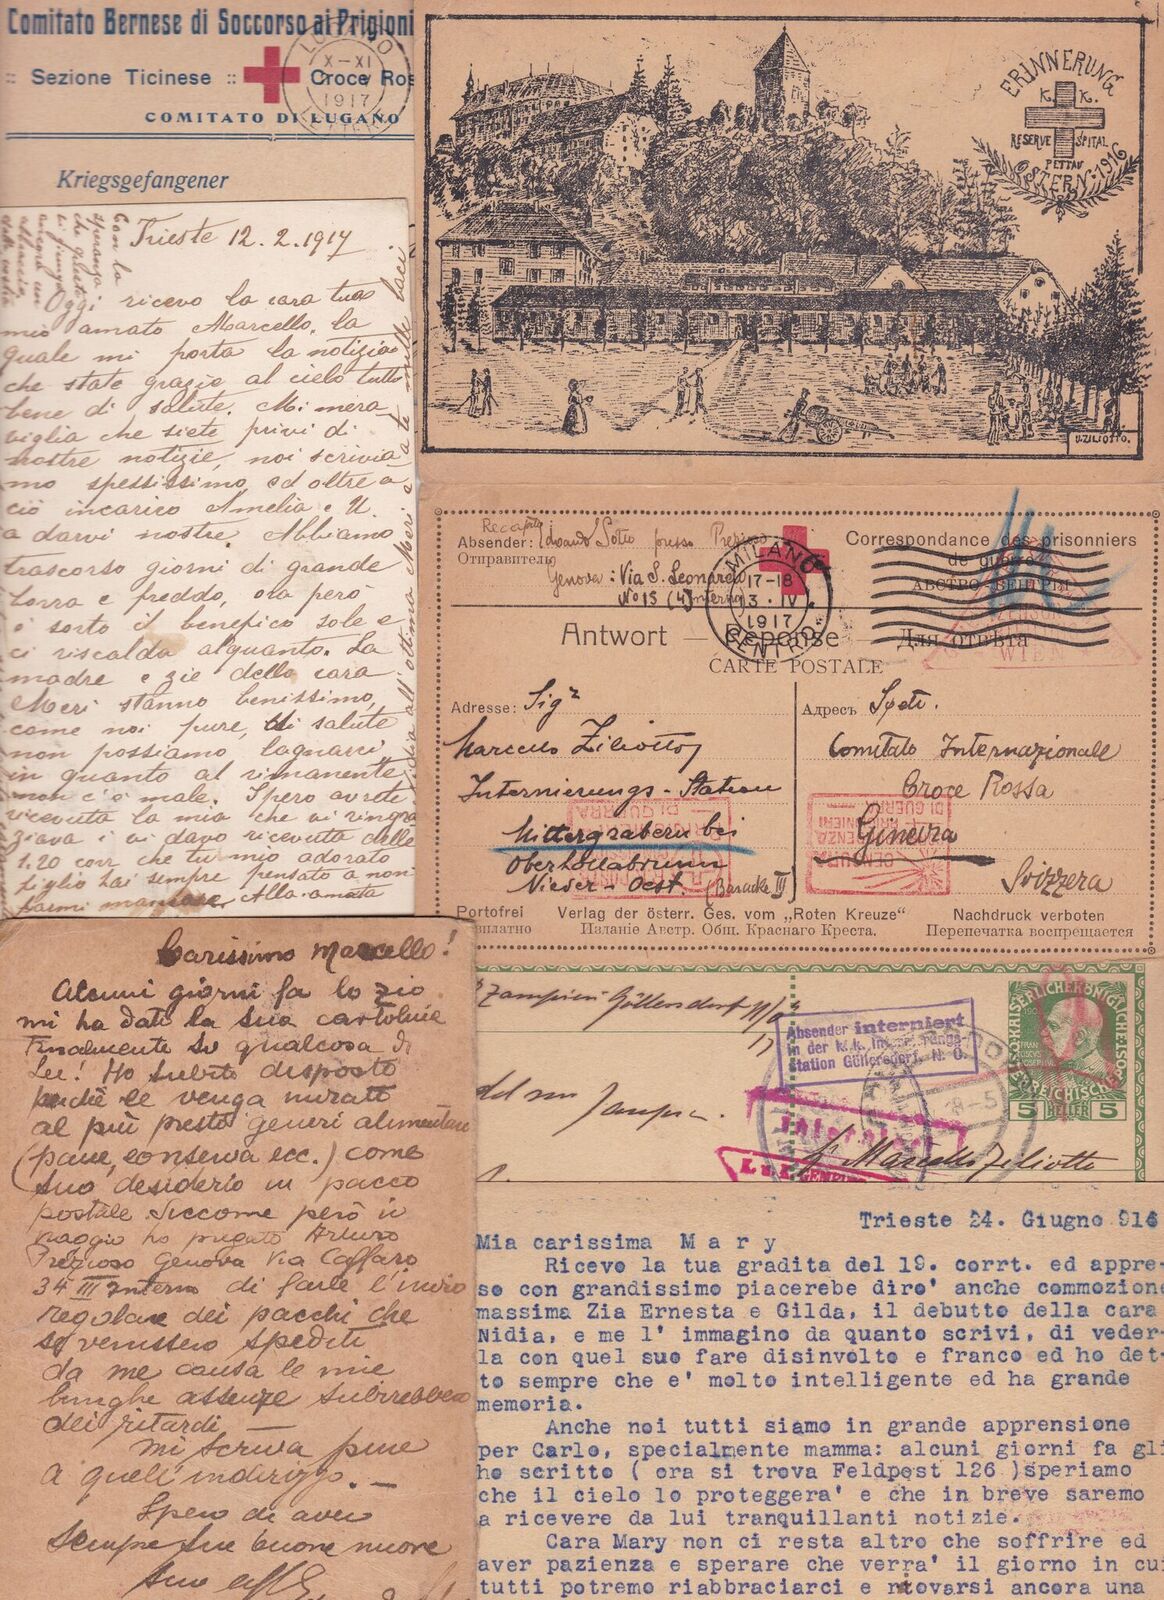 Comitato Bernese di Soccorso ai Prigioni
:: Sezione Ticinese :: Croce Ros
COMITATO DI LUGANO
LUGANO
X–XI
1917
Kriegsgefangener
ERINNERUNG
K. K.
RESERVE SPITAL
PETTAU
OSTERN: 1916
U. ZILIOTTO.
Trieste 12.2.1917
Con la
speranza
che questa
vi giunga
Oggi ricevo la cara tua
mio amato Marcello, la
quale mi porta la notizia
che state grazie al cielo tutti
bene di salute. Mi mera
viglia che siete privi di
nostre notizie, noi scrivia-
mo spessissimo, ed oltre a
ciò incarico Amelia e U.
a darvi nostre. Abbiamo
trascorso giorni di grande
borra e freddo, ora però
è sorto il benefico sole e
ci riscalda alquanto. La
madre e zie della cara
Meri stanno benissimo,
come noi pure, di salute
non possiamo lagnarci
in quanto al rimanente
non c'è male. Spero avrete
ricevuta la mia che vi ringra
ziava i vi davo ricevuta delle
1.20 cor che tu mio adorato
figlio hai sempre pensato a non
farmi mancare. Alla amata
Recapito
Absender: Edoardo Sotto presso Prezioso
Отправитель: Genova: Via S. Leonardo
No 13 (4) interno
MILANO
17–18
13 · IV
1917
CENTRO
Correspondance des prisonniers
de guerre
АВСТРО-ВЕНГРЫ
WIEN
Antwort — Réponse — Для отвѣта
CARTE POSTALE
Adresse: Sigr
Marcello Ziliotto
Internierungs-Station
Mittergrabern bei
Oberhollabrunn
Nieder-Oest (Baracke IV)
Адресъ Spett.
Comitato Internazionale
Croce Rossa
Ginevra
Svizzera
Portofrei Verlag der österr. Ges. vom „Roten Kreuze“ Nachdruck verboten
Безплатно Изданіе Австр. Общ. Краснаго Креста. Перепечатка воспрещается
Carissimo Marcello!
Alcuni giorni fa lo zio
mi ha dato la sua cartolina
Finalmente so qualcosa di
Lei! Ho subito disposto
perchè le venga inviati
al più presto generi alimentari
(pane, conserva ecc.) come
suo desiderio in pacco
postale. Siccome però io
viaggio ho pregato Arturo
Prezioso Genova Via Caffaro
34 III interno di farle l'invio
regolare dei pacchi che
se venissero spediti
da me causa le mie
lunghe assenze subirebbero
dei ritardi
Mi scriva pure
a quell'indirizzo. —
Spero di aver
sempre sue buone nuove
suo
Zampieri Göllersdorf
17
Absender interniert
in der k.k. Internierungs-
station Göllersdorf, N. Ö.
KAISERLICHE KÖNIGLICHE ÖSTERREICHISCHE
5 HELLER 5
Marcello Ziliotto
Trieste 24. Giugno 916
Mia carissima M a r y
Ricevo la tua gradita del 19. corrt. ed appre-
so con grandissimo piacerebbe dire' anche commozione
massima Zia Ernesta e Gilda, il debutto della cara
Nidia, e me l' immagino da quanto scrivi, di veder-
la con quel suo fare disinvolto e franco ed ho det-
to sempre che e' molto intelligente ed ha grande
memoria.
Anche noi tutti siamo in grande apprensione
per Carlo, specialmente mamma: alcuni giorni fa gli
ho scritto ( ora si trova Feldpost 126 )speriamo
che il cielo lo proteggera' e che in breve saremo
a ricevere da lui tranquillanti notizie.
Cara Mary non ci resta altro che soffrire ed
aver pazienza e sperare che verra' il giorno in cui
tutti potremo riabbraciarci e ritovarsi ancora una